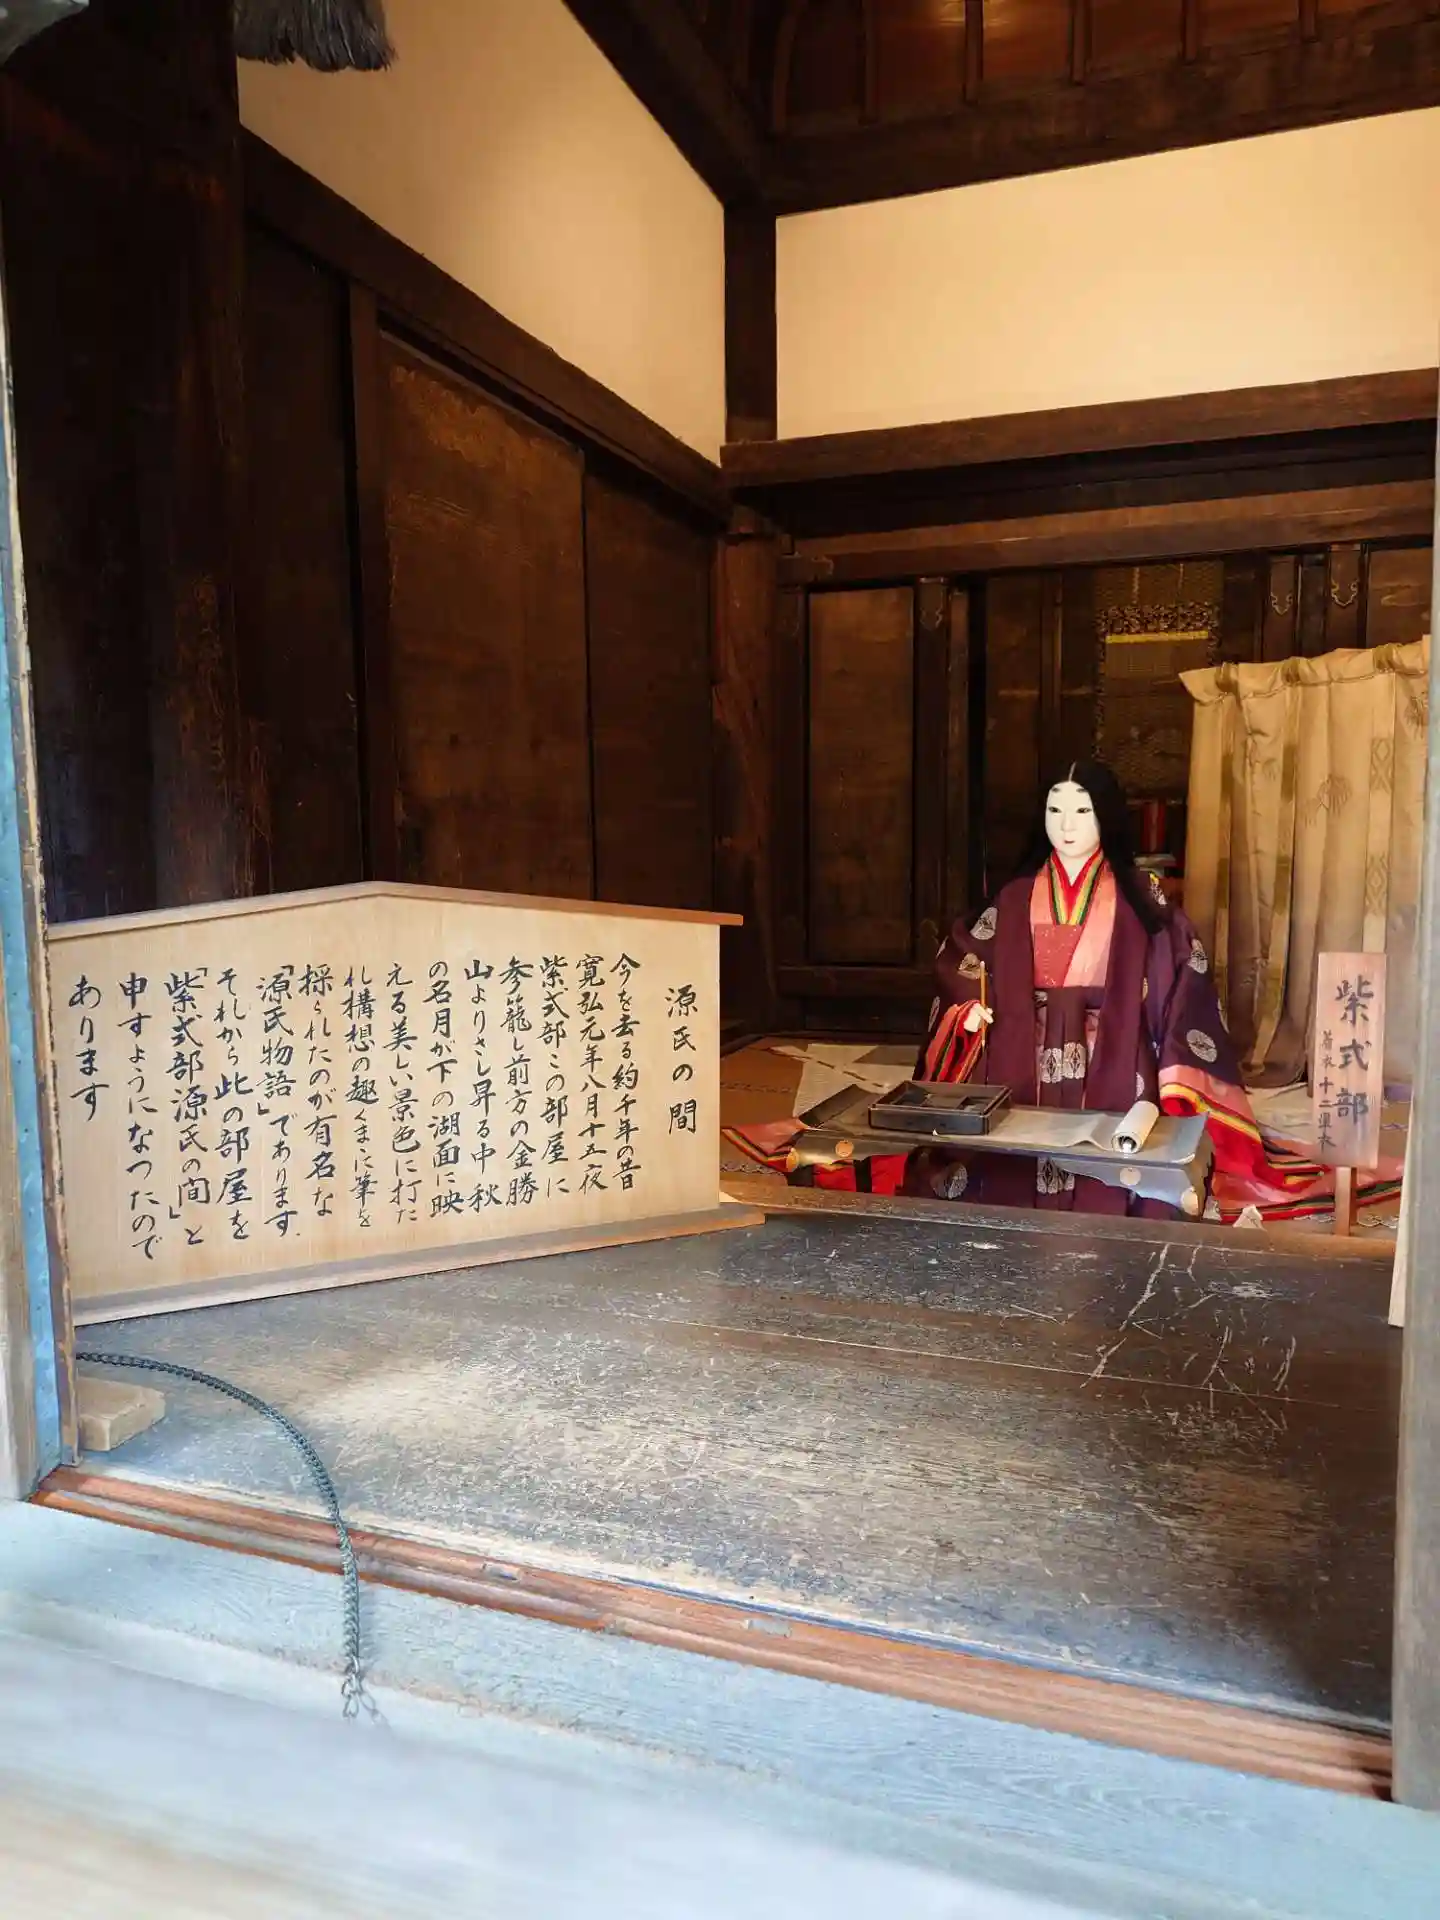 源氏の間
今を去る約千年の昔
寛弘元年八月十五夜
紫式部この部屋に
参籠し前方の金勝
山よりさし昇る中秋
の名月が下の湖面に映
える美しい景色に打た
れ構想の趣くまゝに筆を
採られたのが有名な
「源氏物語」であります.
それから此の部屋を
「紫式部源氏の間」と
申すようになつたので
あります
紫式部
着衣十二単衣